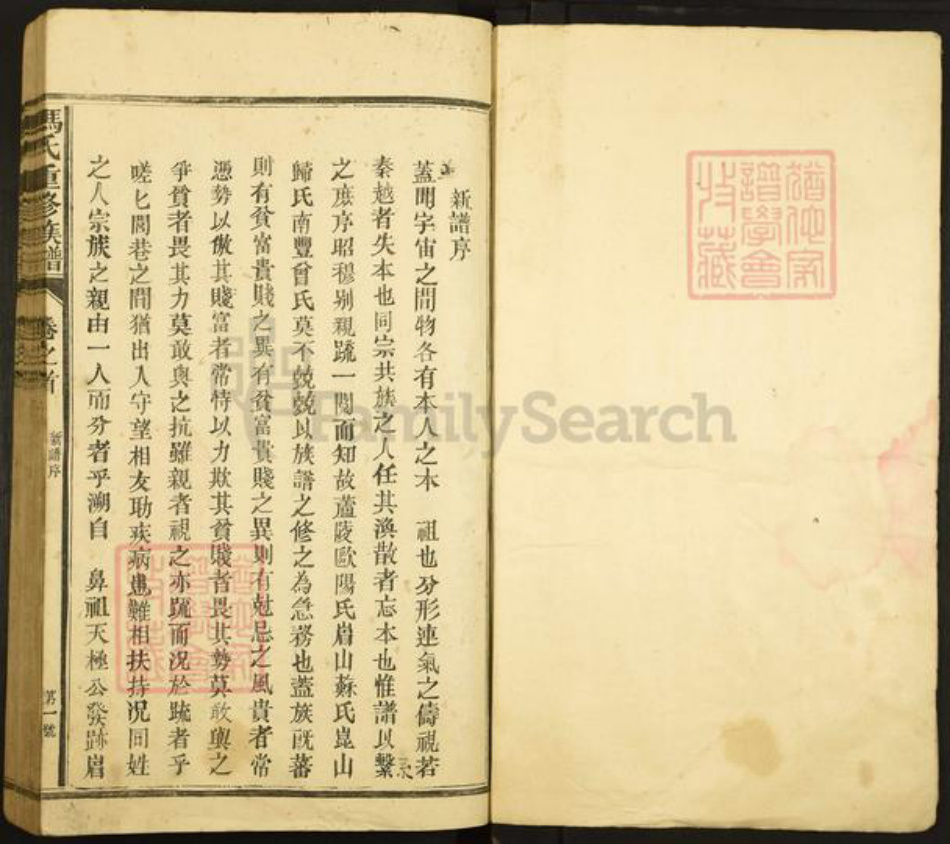 新譜序
蓋聞宇宙之間物各有本人之本 祖也分形連氣之儔視若
秦越者失本也同宗共族之人任其渙散者忘本也惟譜以繫
之庶序昭穆別親疏一閱而知故蘆陵歐陽氏眉山蘇氏崑山
歸氏南豐曾氏莫不兢兢以族譜之修之為急務也蓋族既蕃
則有貧富貴賤之異有貧富貴賤之異則有尅忌之風貴者常
憑勢以傲其賤富者常恃以力欺其貧賤者畏其勢莫敢與之
爭貧者畏其力莫敢與之抗雖親者視之亦疏而況於疏者乎
嗟乚閭巷之間猶出入守望相友助疾病患難相扶持況同姓
之人宗族之親由一人而分者乎溯自 鼻祖天極公發跡眉
馮氏重修族譜 卷之首 新譜序 第一號
猶他家
譜學會
收藏
FamilySearch